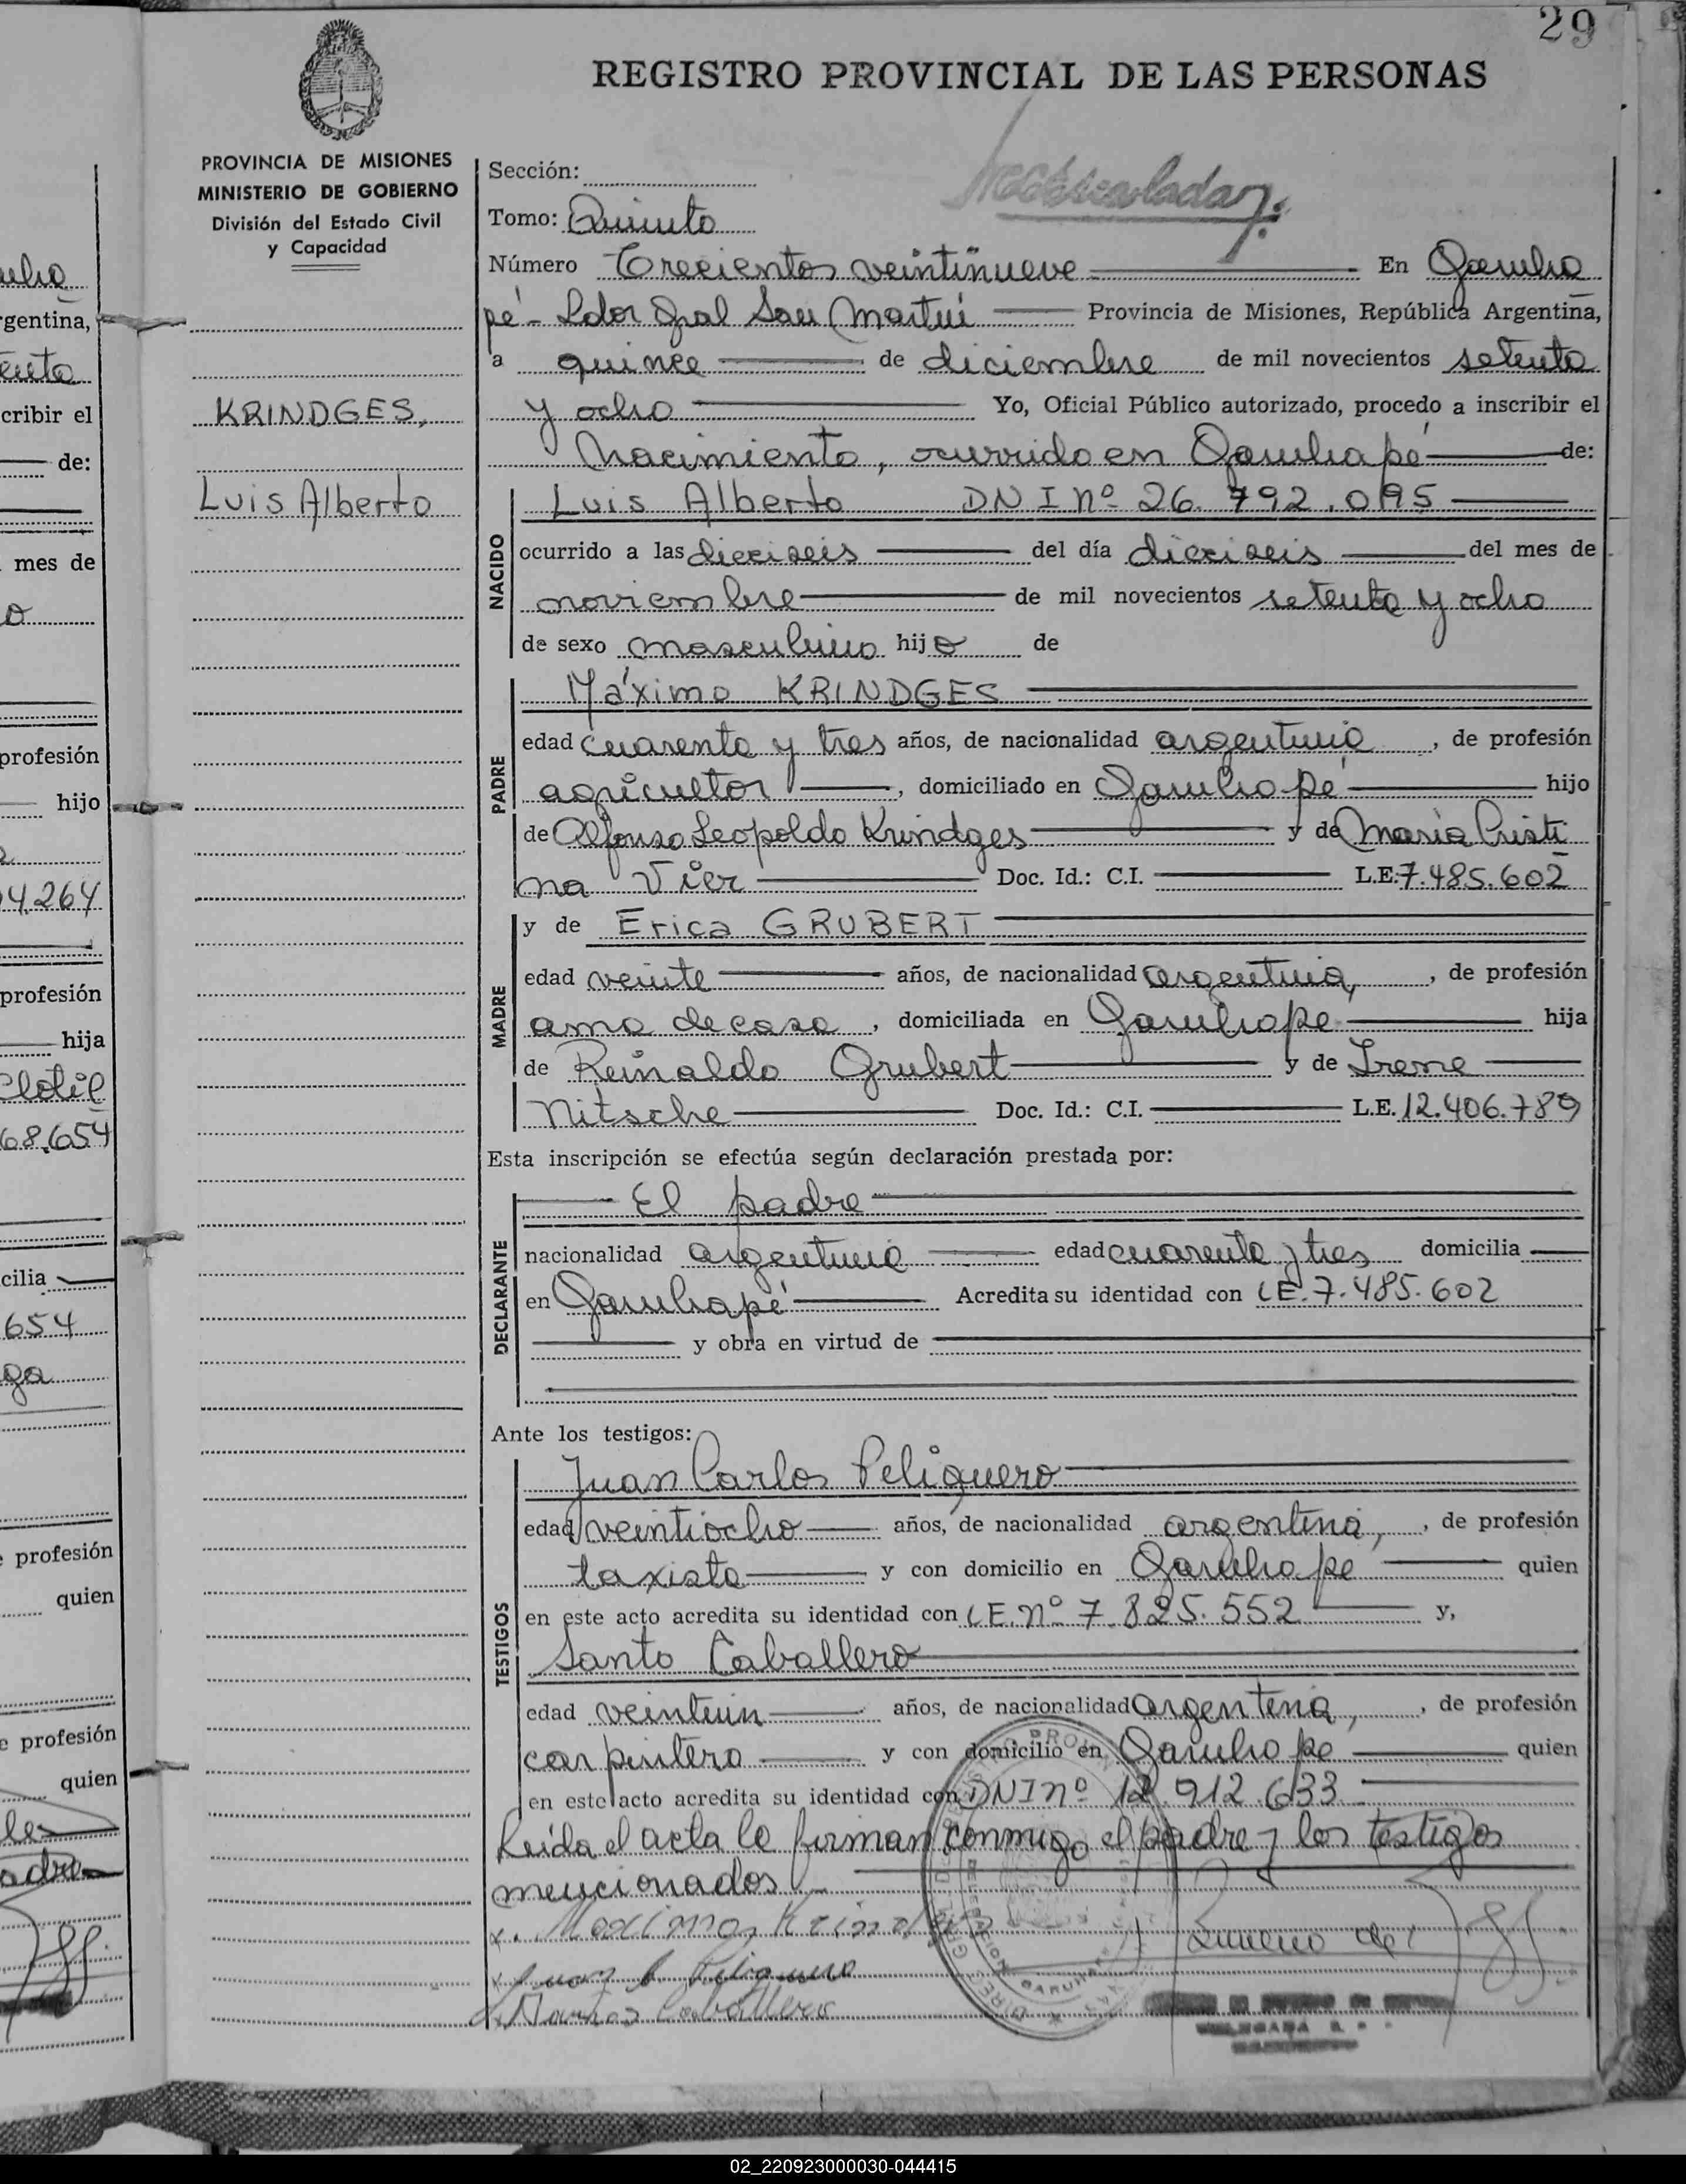 29
REGISTRO PROVINCIAL DE LAS PERSONAS
PROVINCIA DE MISIONES
MINISTERIO DE GOBIERNO
División del Estado Civil
y Capacidad
KRINDGES,
Luis Alberto
Sección:
Tomo: Quinto
Número Trecientos veintinueve En Garuha
pé - Ldor Gral San Martín Provincia de Misiones, República Argentina,
a quince de diciembre de mil novecientos setenta
y ocho Yo, Oficial Público autorizado, procedo a inscribir el
Nacimiento, ocurrido en Garuhapé de:
NACIDO
Luis Alberto DNI Nº 26.792.095
ocurrido a las dieciseis del día dieciseis del mes de
noviembre de mil novecientos setenta y ocho
de sexo masculino hijo de
PADRE
Máximo KRINDGES
edad cuarenta y tres años, de nacionalidad argentina, de profesión
agricultor, domiciliado en Garuhapé hijo
de Alfonso Leopoldo Krindges y de María Cristi
na Vier Doc. Id.: C.I. L.E. 7.485.602
MADRE
y de Erica GRUBERT
edad veinte años, de nacionalidad argentina, de profesión
ama de casa, domiciliada en Garuhape hija
de Reinaldo Grubert y de Irene
Nitsche Doc. Id.: C.I. L.E. 12.406.789
Esta inscripción se efectúa según declaración prestada por:
DECLARANTE
El padre
nacionalidad argentina edad cuarenta y tres domicilia
en Garuhapé Acredita su identidad con LE. 7.485.602
y obra en virtud de
Ante los testigos:
TESTIGOS
Juan Carlos Peliquero
edad veintiocho años, de nacionalidad argentina, de profesión
taxista y con domicilio en Garuhape quien
en este acto acredita su identidad con LE. Nº 7.825.552 y,
Santo Caballero
edad veintiun años, de nacionalidad argentena, de profesión
carpintero y con domicilio en Garuhape quien
en este acto acredita su identidad con DNI nº 12.912.633
Leída el acta la firman conmigo el padre y los testigos
mencionados
02_220923000030-044415